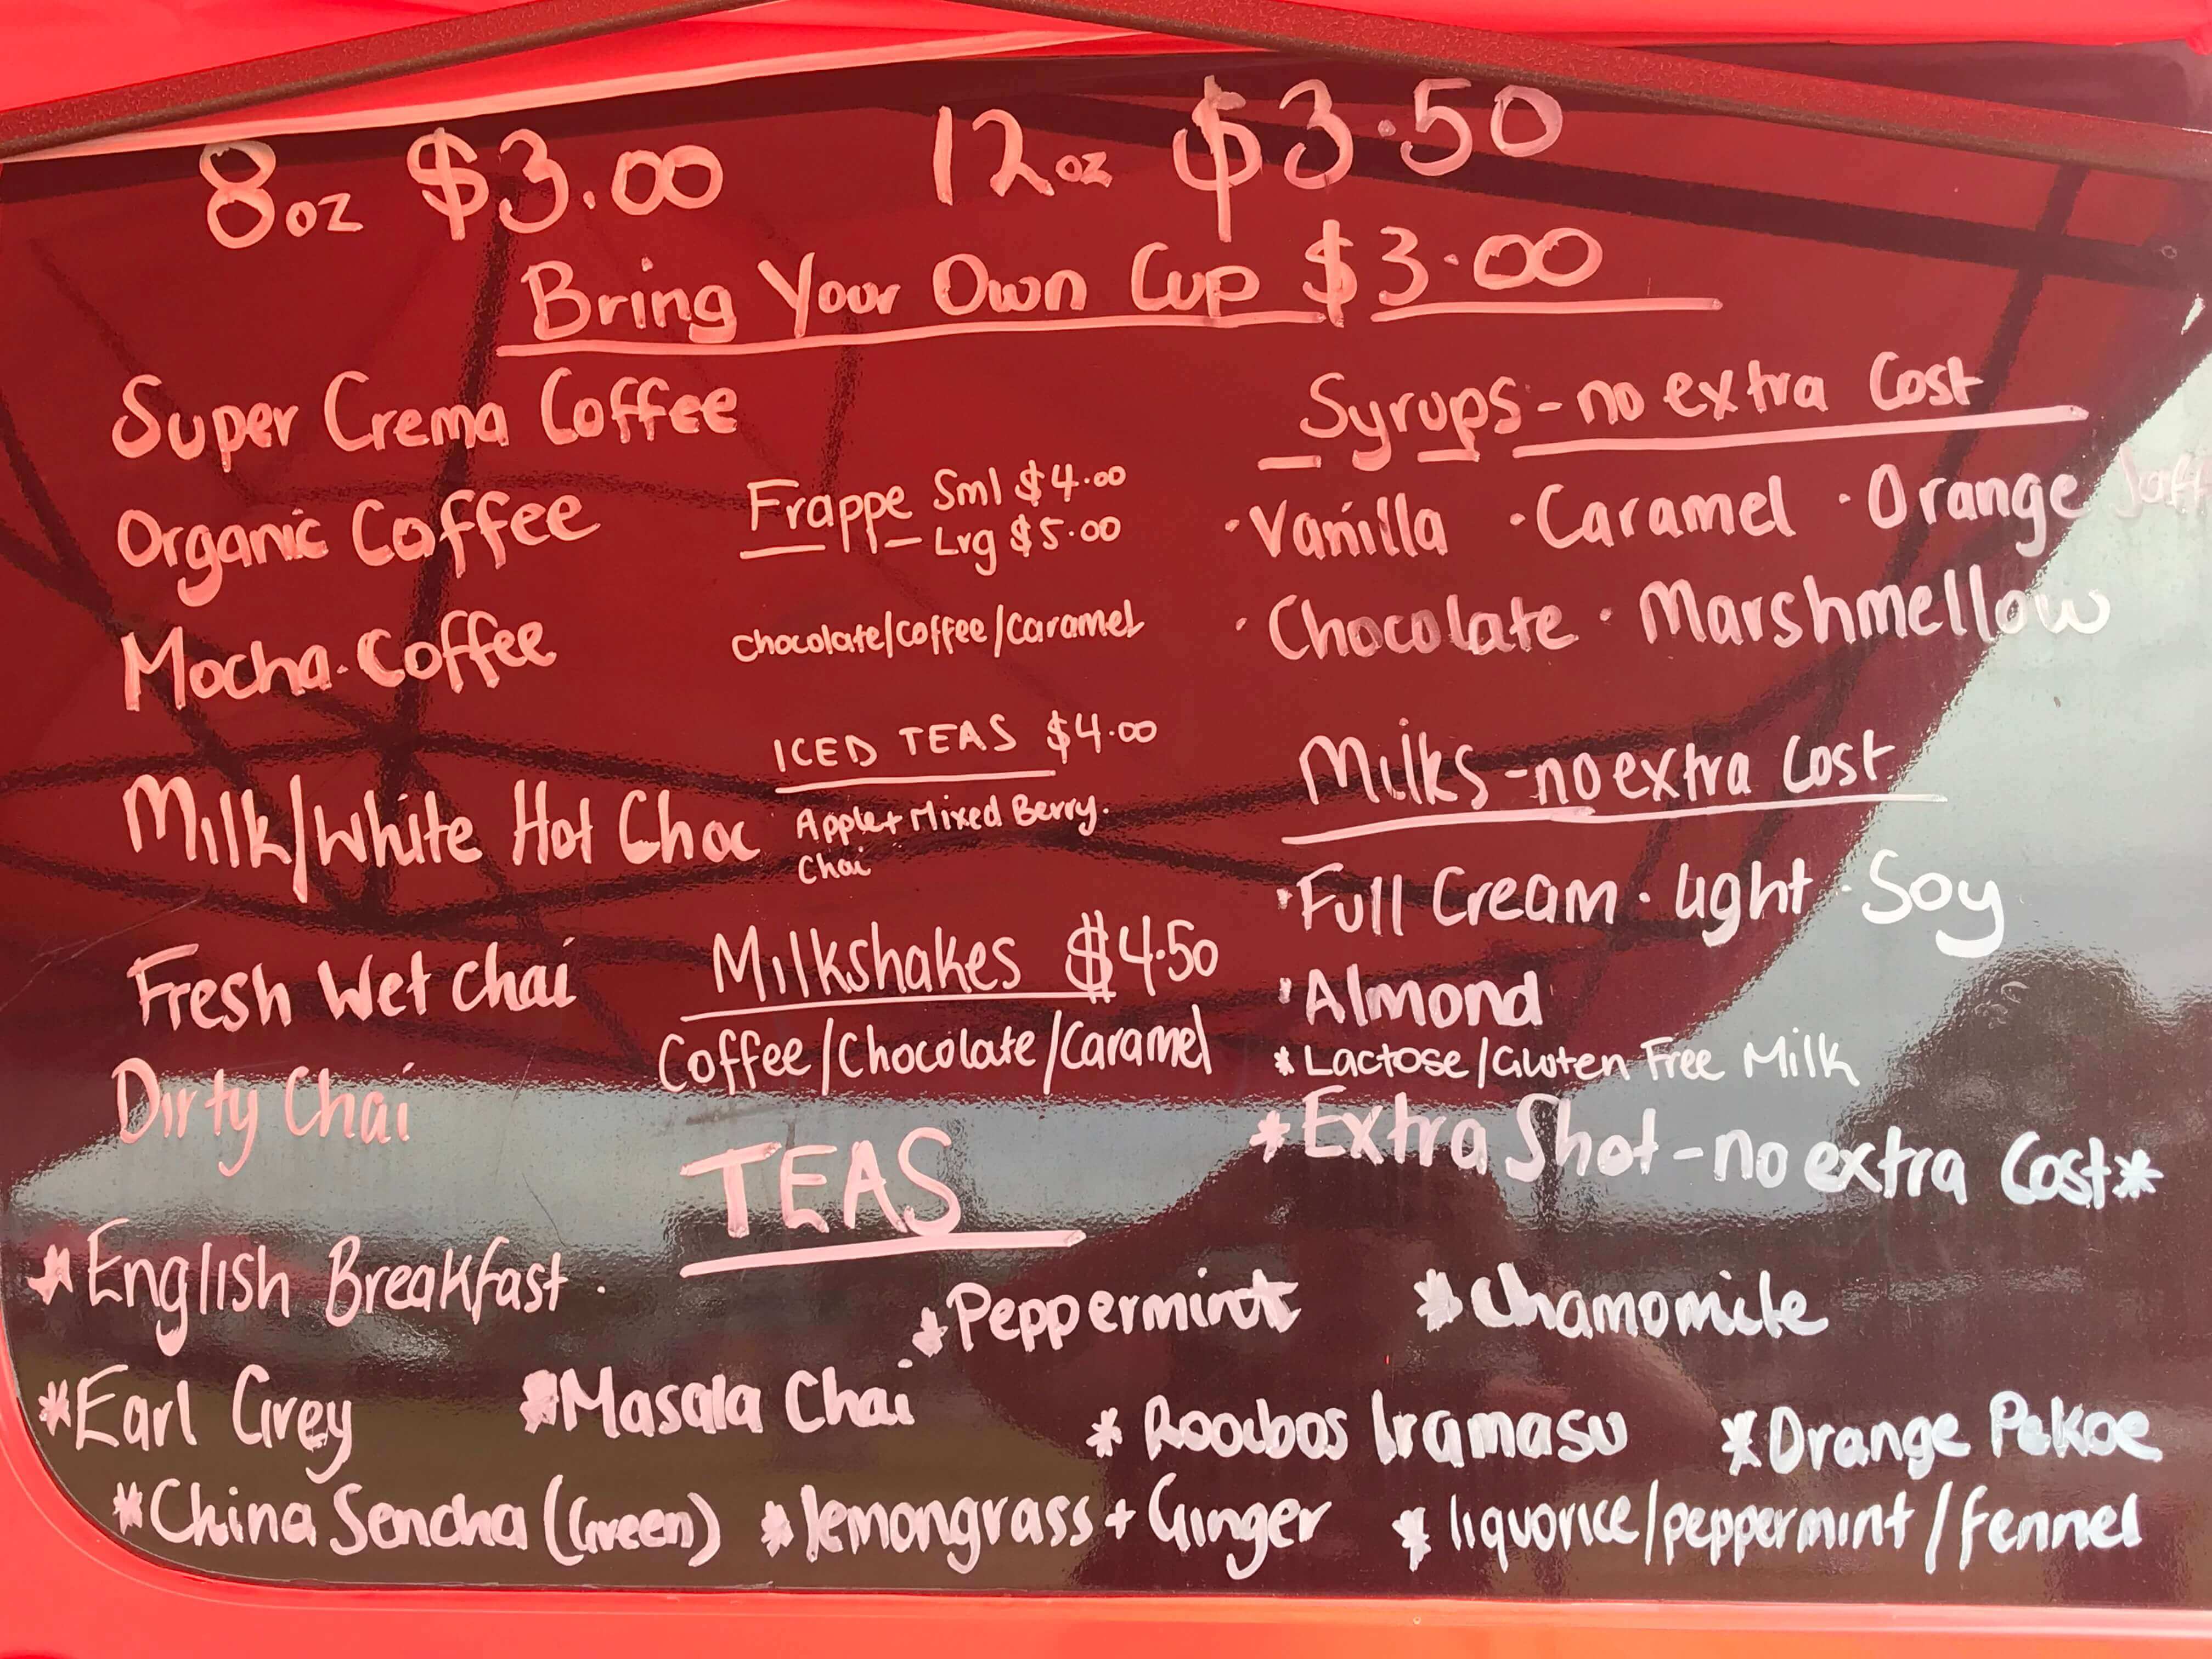 8oz $3.00 12oz $3.50
Bring Your Own Cup $3.00
Super Crema Coffee
Organic Coffee
Mocha-Coffee
Milk/White Hot Choc
Fresh Wet Chai
Dirty Chai
Frappe Sml $4.00
Lrg $5.00
Chocolate/Coffee/Caramel
ICED TEAS $4.00
Apple+Mixed Berry.
Chai
Milkshakes $4.50
Coffee/Chocolate/Caramel
Syrups-no extra Cost
·Vanilla ·Caramel ·Orange
·Chocolate ·Marshmellow
Milks-no extra Cost
·Full Cream ·Light ·Soy
·Almond
*Lactose/Gluten Free Milk
*Extra Shot-no extra Cost*
TEAS
*English Breakfast. *Peppermint *Chamomile
*Earl Grey *Masala Chai *Rooibos *Orange Pekoe
*China Sencha (Green) *lemongrass + Ginger *liquorice/peppermint/fennel